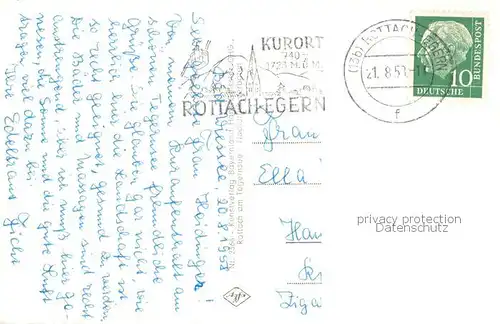 Bad Wiessee, 20.8.1958
Sehr geehrte Frau Haidinger!
Von meinem Kuraufenthalt am
schönen Tegernsee freundliche
Grüße. Sie glauben gar nicht, wie
herrlich hier die Landschaft ist
so recht geeignet, gesund zu werden.
Die Bäder und Massagen sind recht
anstrengend, aber ich muß hier ge-
nesen, die Sonne und die gute Luft
tragen viel dazu bei.
Ihre Edeltraut
KURORT
740-
1723 M.Ü.M.
ROTTACH-EGERN
(13b) ROTTACH-EGERN
21.8.58
f
10
DEUTSCHE BUNDESPOST
Kunstverlag
Rottach am Tegernsee
Frau
Ella
Han
Ziga
privacy protection
Datenschutz